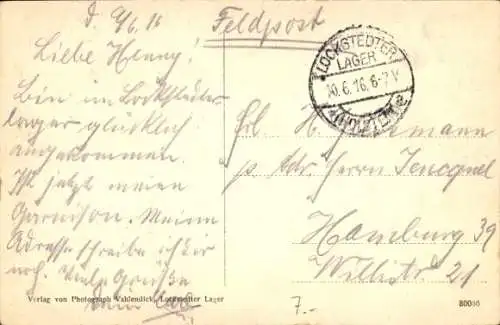 d. 9/6. 16
Feldpost
Liebe Henny!
Bin im Lockstedter-
lager glücklich
angekommen.
Ist jetzt meine
Garnison. Meine
Adresse schreibe ich dir
noch. Viele Grüße
LOCKSTEDTER
LAGER
10.6.16. 6-7 V
Frl. H.
p. Adr. Herrn Jencquel
Hamburg 39
Willistr. 21
Verlag von Photograph Vahlendick, Lockstedter Lager
80056
7.-